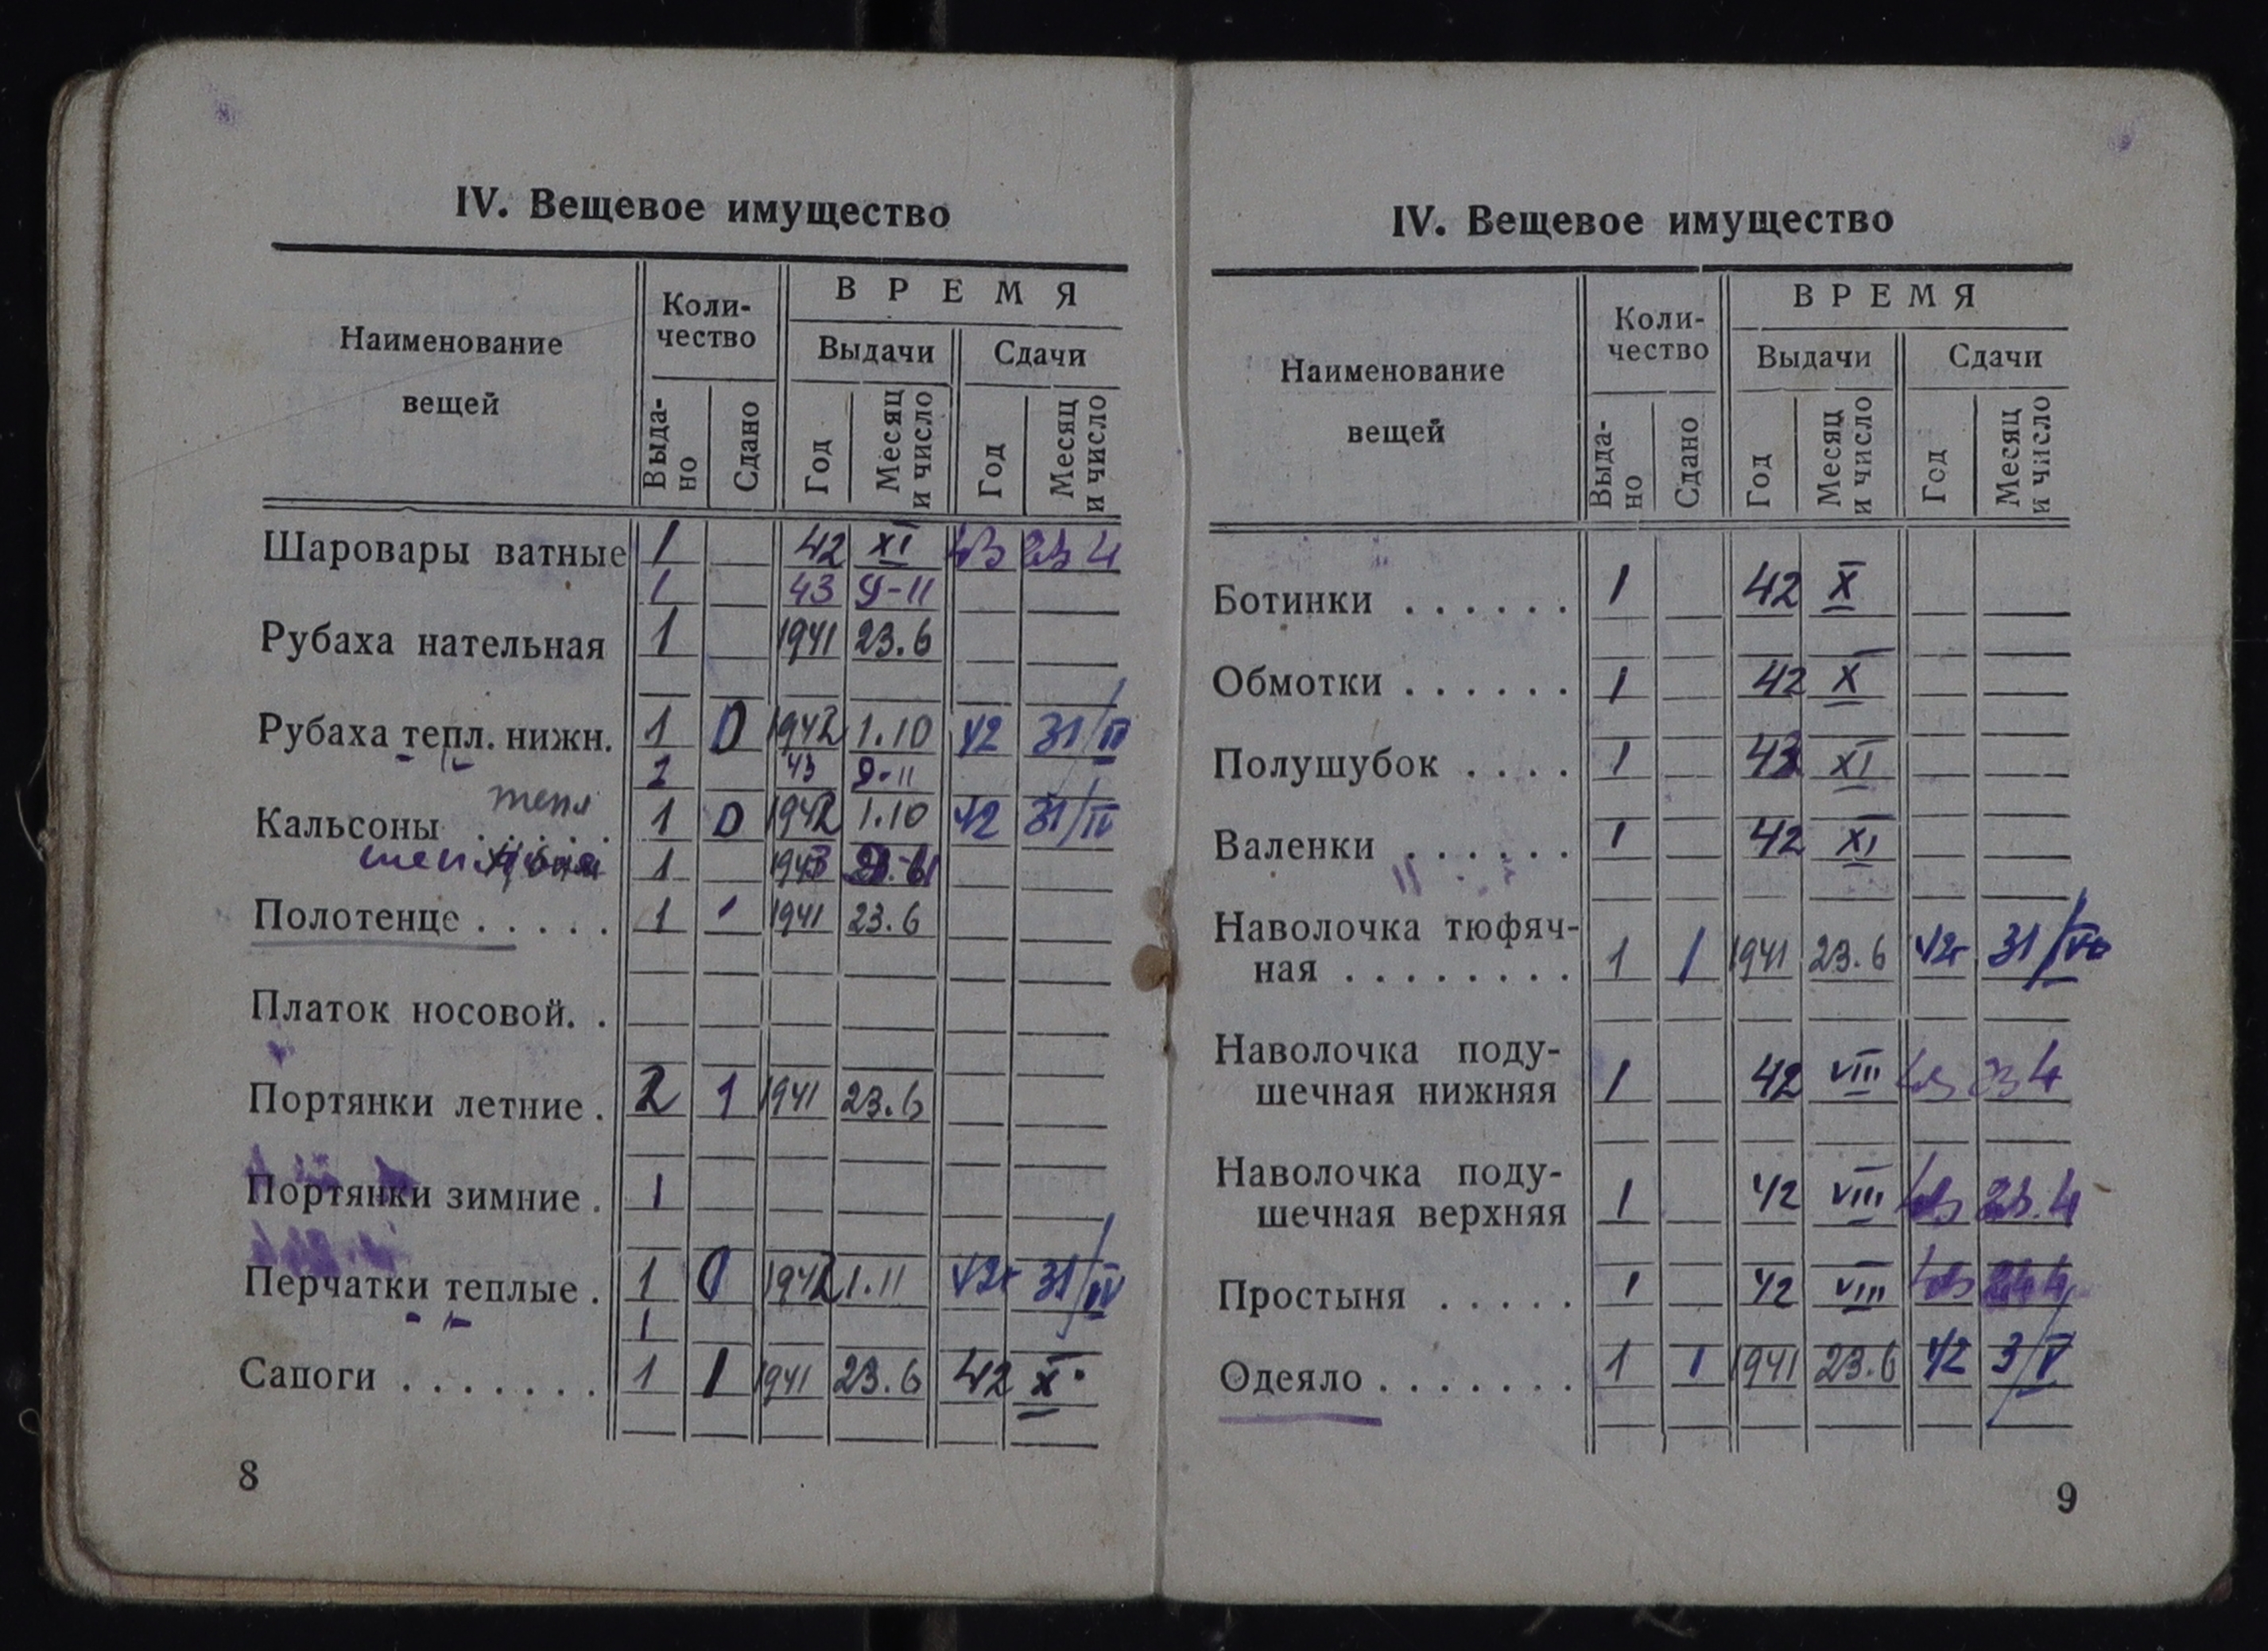 IV. Вещевое имущество
Наименование
вещей
Коли-
чество
ВРЕМЯ
Выдачи
Сдачи
Выда-
но
Сдано
Год
Месяц
и число
Год
Месяц
и число
Шаровары ватные 1 42 XI 43 23 4
1 43 9-11
Рубаха нательная 1 1941 23.6
Рубаха тепл. нижн. 1 0 1942 1.10 42 31/IV
43 9-11
тепл
Кальсоны . . . . . 1 0 1942 1.10 42 31/IV
1 1943
Полотенце . . . . . 1 1941 23.6
Платок носовой. .
Портянки летние . 2 1 1941 23.6
Портянки зимние . 1
Перчатки теплые . 1 0 1942 1.11 42г 31/IV
1
Сапоги . . . . . . . 1 1 1941 23.6 42 X
8
IV. Вещевое имущество
Наименование
вещей
Коли-
чество
ВРЕМЯ
Выдачи
Сдачи
Выда-
но
Сдано
Год
Месяц
и число
Год
Месяц
и число
Ботинки . . . . . . 1 42 X
Обмотки . . . . . . 1 42 X
Полушубок . . . . 1 43 XI
Валенки . . . . . . 1 42 XI
Наволочка тюфяч-
ная . . . . . . . . 1 1 1941 23.6 42г 31/
Наволочка поду-
шечная нижняя 1 42 VIII 43 23 4
Наволочка поду-
шечная верхняя 1 42 VIII 43 23.4
Простыня . . . . . 1 42 VIII 43
Одеяло . . . . . . . 1 1 1941 23.6 42 3/V
9